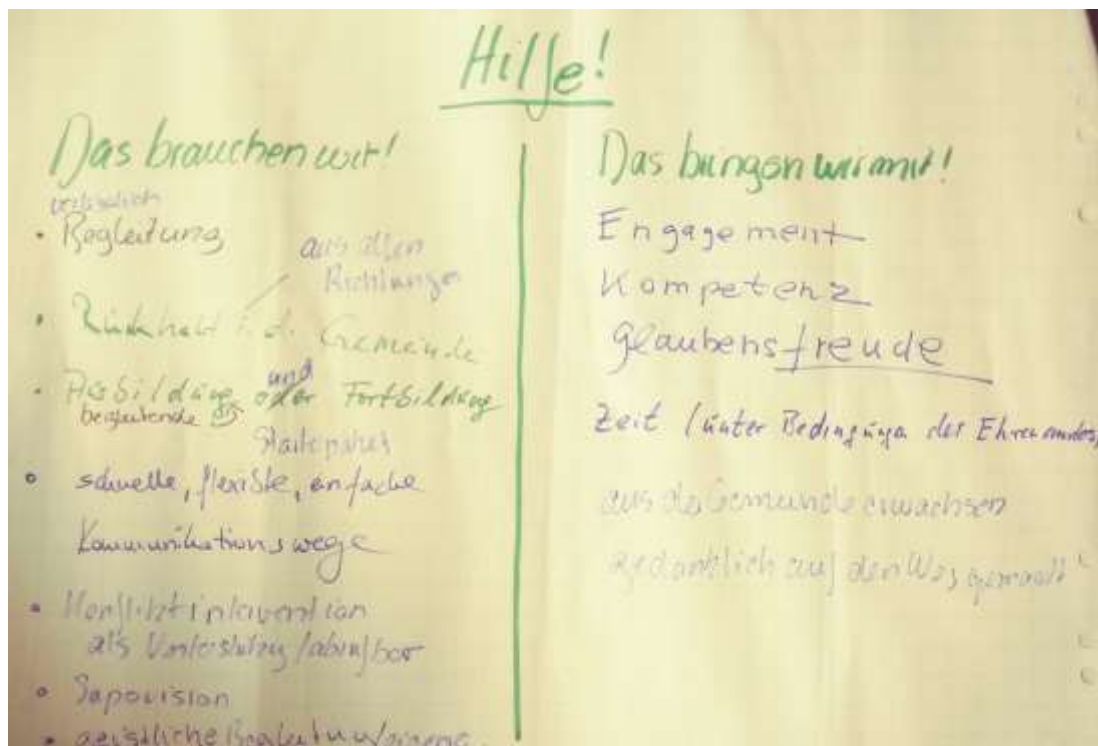 Hilfe!
Das brauchen wir!
verlässlich
• Begleitung
aus allen
Richtungen
• Rückhalt i. d. Gemeinde
und
• Ausbildung oder Fortbildung
begleitende
Startpaket
• schnelle, flexible, einfache
Kommunikationswege
• Konfliktintervention
als /abrufbar
• Supervision
• geistliche Begleitung
Das bringen wir mit!
Engagement
Kompetenz
Glaubensfreude
Zeit (unter Bedingungen des Ehrenamtes)
aus der Gemeinde erwachsen
gedanklich auf den Weg gemacht